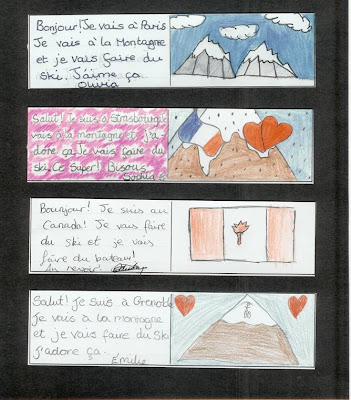 Bonjour! Je vais à Paris
Je vais à la Montagne
et je vais faire du
ski. J'aime ça
Olivia
Salut! Je suis à Strasbourg
vais à la montagne et j'a-
dore ça. Je vais faire du
ski. Ce Super! Bisous
Sophia
Bounjour! Je suis au
Canada! Je vais faire
du ski et je vais
faire du bateau!
Au revoir!
Salut! Je suis à Grenoble
Je vais à la montagne
et je vais faire du Ski
j'adore ça.
Emilie